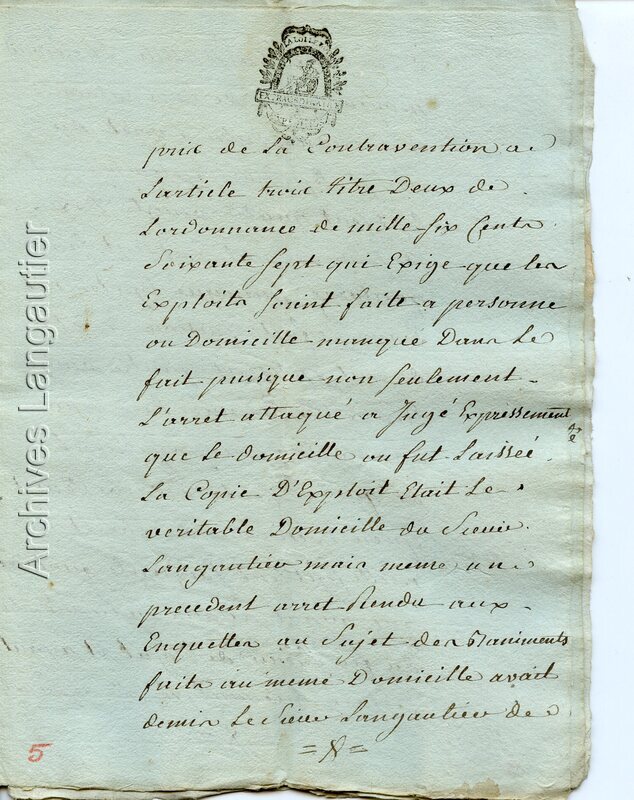 LA LOI LE R
EXTRAORDINAIRE
pris de La Contravention a
Larticle trois titre Deux de
Lordonnance de mille six Cents
Soixante Sept qui Exige que les
Exploits Soint faits a personne
ou Domicille manque Dans Le
fait puisque non seulement
L'arret attaqué a Jugé Expressement
que Le domicille ou fut Laissée
La Copie D'Exploit Etait Le
veritable Domicille du Sieur
Langautier mais meme un
precedent arret Rendu aux
Enquettes au Sujet des Banniments
faits au meme Domicille avait
demis Le Sieur Langautier de
5
Archives Langautier